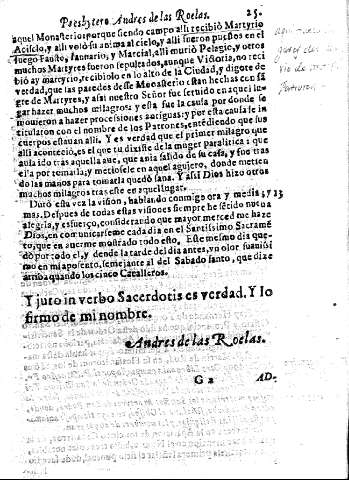 Presbytero Andres de las Roelas. 25.
aquel Monasterio: porque siendo campo alli recibiò Martyrio
Acisclo, y alli volò su anima al cielo, y alli fueron puestos en el
fuego Fausto, Ianuario, y Marcial, alli muriò Pelagio, y otros
muchos Martyres fueron sepultados, aunque Victoria, no reci
biò ay martyrio, recibiolo en lo alto de la Ciudad, y digote de
verdad, que las paredes deste Monasterio estan hechas con sá
gre de Martyres, y assi nuestro Señor fue servido en aquel lu-
gar hazer muchos milagros y esta fue la causa por donde se
mouieron a hazer processiones antiguas; y por esta causa le in
titularon con el nombre de los Patrones, entēdiendo que sus
cuerpos estauan alli. Y es verdad que el primer milagro que
alli aconteciò, es el que tu dixiste de la muger paralitica: que
auia ido tras aquella aue, que auia salido de su casa, y fue tras
ella por tomarla, y metiosele en aquel agujero, donde metien
do las manos para tomarla quedò sana. Y assi Dios hizo otros
muchos milagros tras este en aquel lugar.
Durò esta vez la vision, hablando conmigo ora y media; y
mas. Despues de todas estas visiones siempre he sētido nueua
alegria, y esfuerço, considerando que mayor merced me haze
Dios, en comunicarseme cada dia en el Santissimo Sacramē
to, que en auerme mostrado todo esto. Este mesmo dia que-
dò por todo el, y dende la tarde del dia antes, vn olor suauissi
mo en mi aposento, semejante al del Sabado santo, que dixe
arriba quando los cinco Cavalleros.
Y juro in verbo Sacerdotis es verdad. Y lo
firmo de mi nombre.
Andres de las Roelas.
G 2 AD-